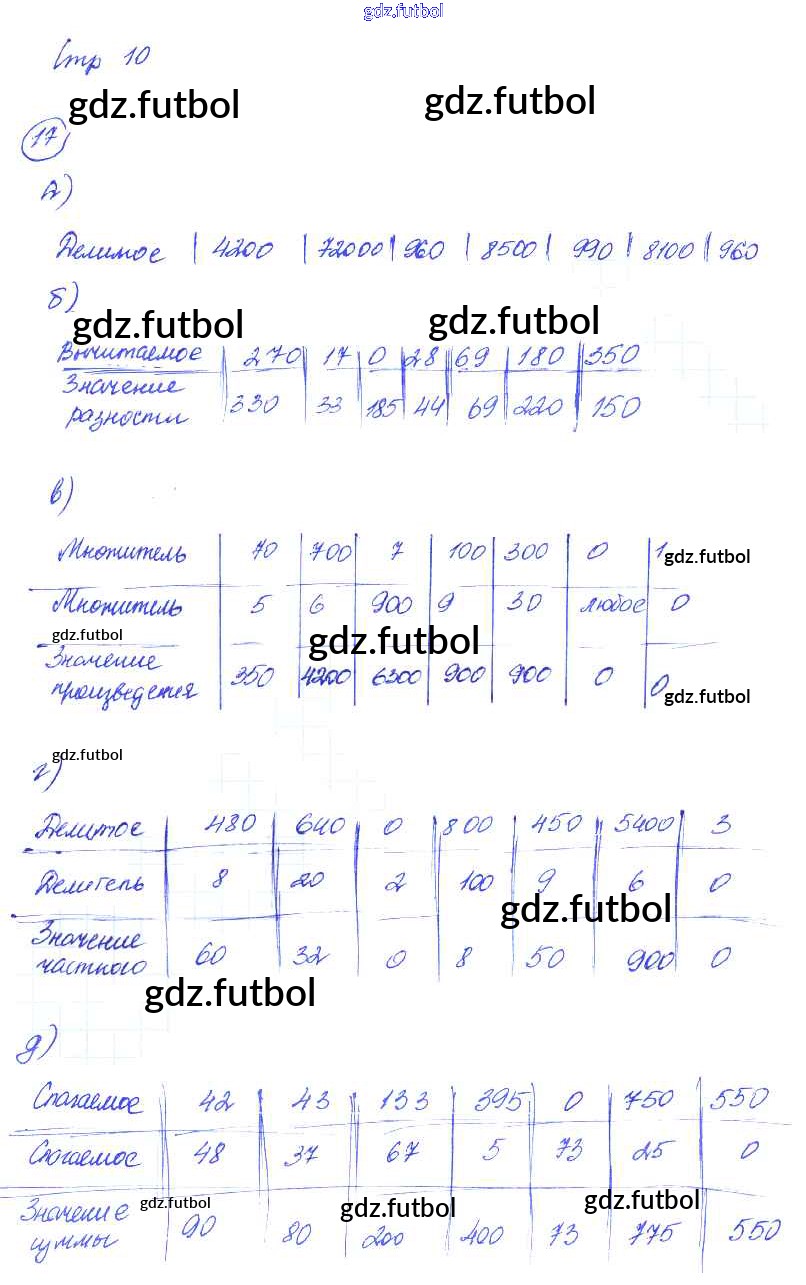 gdz.futbol
Стр 10
gdz.futbol gdz.futbol
17
а)
Делимое | 4200 | 72000 | 960 | 8500 | 990 | 8100 | 960
б)
gdz.futbol gdz.futbol
Вычитаемое 270 17 0 28 69 180 350
Значение
разности 330 33 185 44 69 220 150
в)
Множитель 70 700 7 100 300 0 1
gdz.futbol
Множитель 5 6 900 9 30 любое 0
gdz.futbol gdz.futbol
Значение
произведения 350 4200 6300 900 900 0 0
gdz.futbol
gdz.futbol
г)
Делимое 480 640 0 800 450 5400 3
Делитель 8 20 2 100 9 6 0
gdz.futbol
Значение
частного 60 32 0 8 50 900 0
gdz.futbol
д)
Слагаемое 42 43 133 395 0 750 550
Слагаемое 48 37 67 5 73 25 0
gdz.futbol gdz.futbol gdz.futbol
Значение
суммы 90 80 200 400 73 775 550